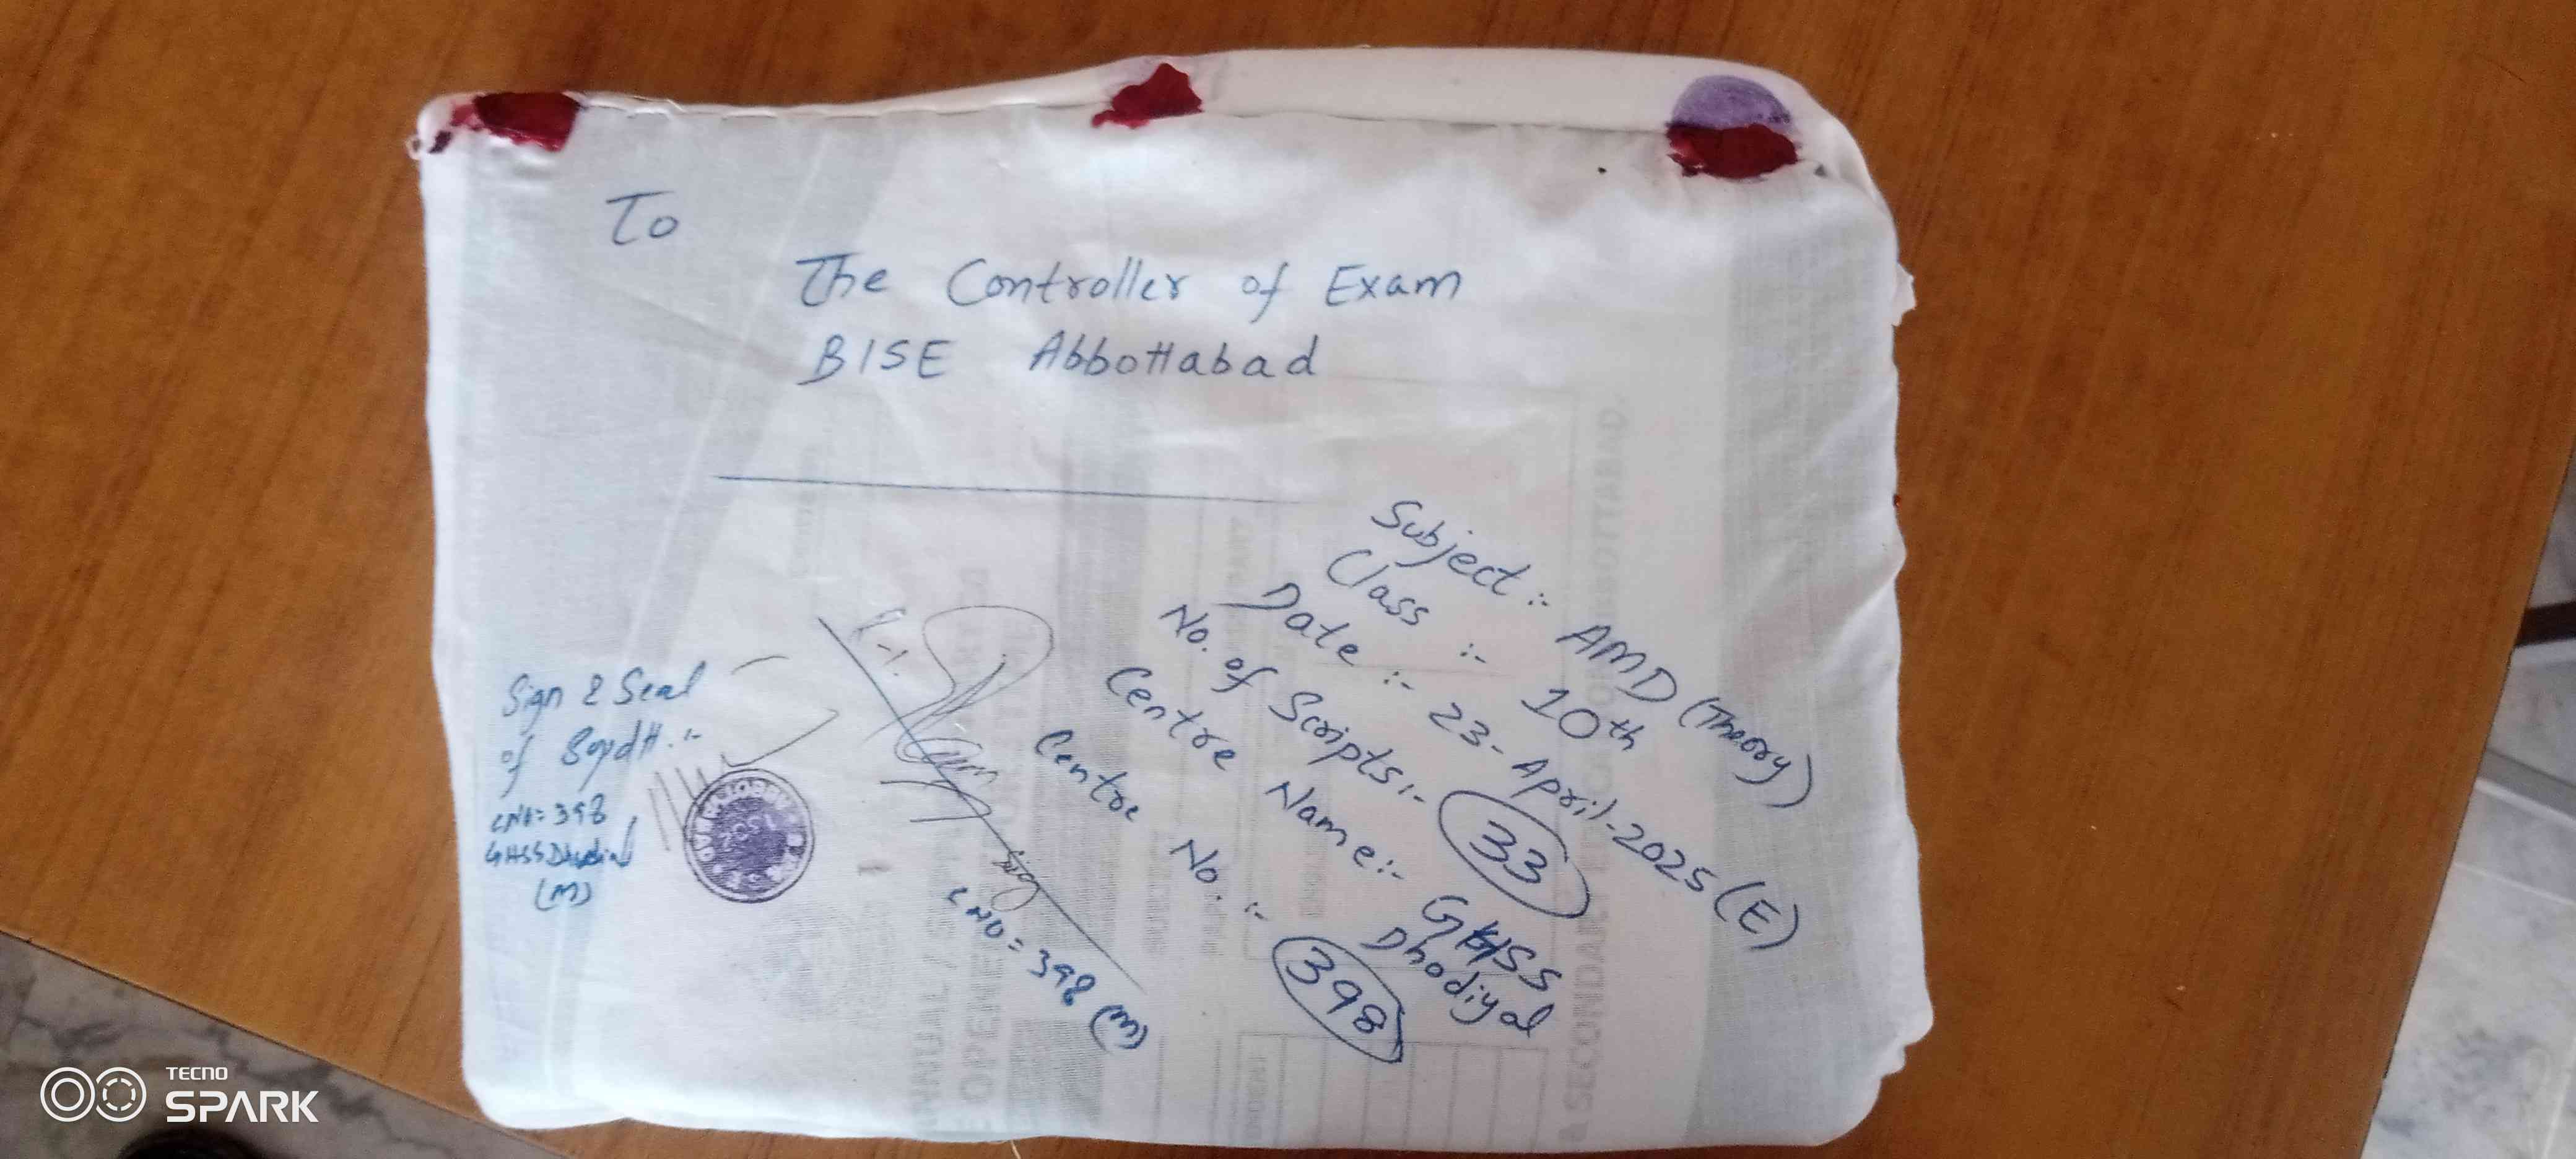 To
The Controller of Exam
BISE Abbottabad
Subject:- AMD (Theory)
Class :- 10th
Date :- 23-April-2025 (E)
No. of Scripts:- 33
Centre Name:- GHSS
Dhodiyal
Centre No. :- 398
Sign & Seal
of
CNO= 398
GHSS
(M)
CNO= 398 (M)
TECNO
SPARK